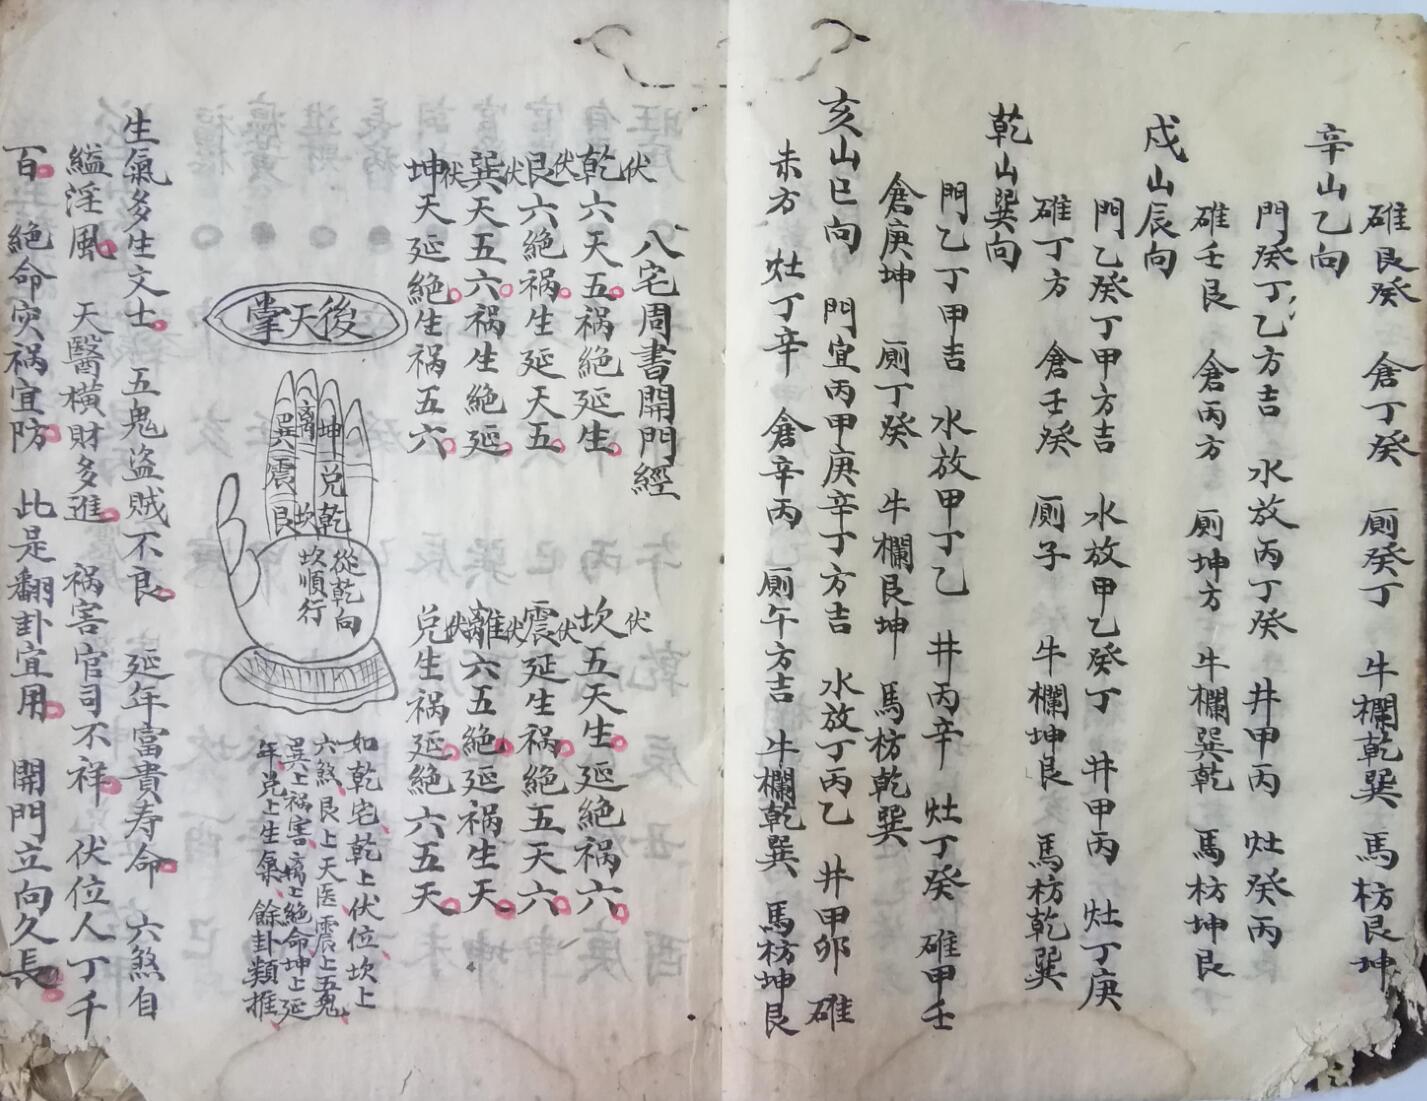 碓艮癸　倉丁癸　厠癸丁　牛欄乾巽　馬枋艮坤
辛山乙向
門癸丁乙方吉　水放丙丁癸　井甲丙　灶癸丙
碓壬艮　倉丙方　厠坤方　牛欄巽乾　馬枋坤艮
戍山辰向
門乙癸丁甲方吉　水放甲乙癸丁　井甲丙　灶丁庚
碓丁方　倉壬癸　厠子　牛欄坤艮　馬枋乾巽
乾山巽向
門乙丁甲吉　水放甲丁乙　井丙辛　灶丁癸　碓甲壬
倉庚坤　厠丁癸　牛欄艮坤　馬枋乾巽
亥山巳向　門宜丙甲庚辛丁方吉　水放丁丙乙　井甲卯　碓
未方　灶丁辛　倉辛丙　厠午方吉　牛欄乾巽　馬枋坤艮
八宅周書開門經
伏
乾六天五祸絶延生
伏
坎五天生延絶祸六
伏
艮六絶祸生延天五
伏
震延生祸絶五天六
伏
巽天五六祸生絶延
伏
離六五絶延祸生天
伏
坤天延絶生祸五六
伏
兌生祸延絶六五天
後天掌
坤
兌
乾
離
坎
巽
震
艮
從乾向
坎順行
如乾宅乾上伏位坎上
六煞艮上天医震上五鬼
巽上祸害离上絶命坤上延
年兌上生氣餘卦類推
生氣多生文士　五鬼盗贼不良　延年富貴寿命　六煞自
縊淫風　天醫橫财多進　祸害官司不祥　伏位人丁千
百　絶命灾祸宜防　此是翻卦宜用　開門立向久長